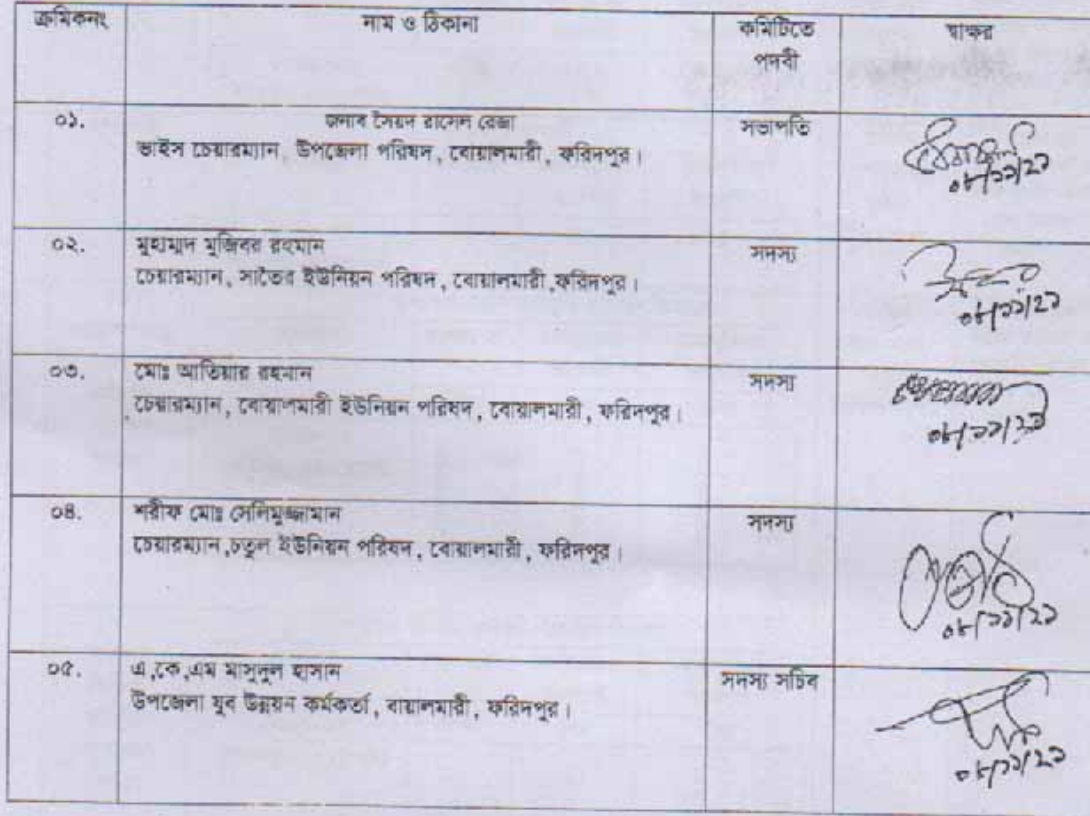 ক্রমিকনং নাম ও ঠিকানা কমিটিতে পদবী স্বাক্ষর
০১. জনাব সৈয়দ রাসেল রেজা সভাপতি
ভাইস চেয়ারম্যান, উপজেলা পরিষদ, বোয়ালমারী, ফরিদপুর।
০৮/১১/২১
০২. মুহাম্মদ মুজিবর রহমান সদস্য
চেয়ারম্যান, সাতৈর ইউনিয়ন পরিষদ, বোয়ালমারী,ফরিদপুর।
০৮/১১/২১
০৩. মোঃ আতিয়ার রহমান সদস্য
চেয়ারম্যান, বোয়ালমারী ইউনিয়ন পরিষদ, বোয়ালমারী, ফরিদপুর।
০৮/১১/২১
০৪. শরীফ মোঃ সেলিমুজ্জামান সদস্য
চেয়ারম্যান,চতুল ইউনিয়ন পরিষদ, বোয়ালমারী, ফরিদপুর।
০৮/১১/২১
০৫. এ,কে,এম মাসুদুল হাসান সদস্য সচিব
উপজেলা যুব উন্নয়ন কর্মকর্তা, বায়ালমারী, ফরিদপুর।
০৮/১১/২১